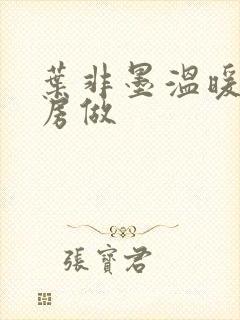 葉非墨溫暖
房做
張寶君